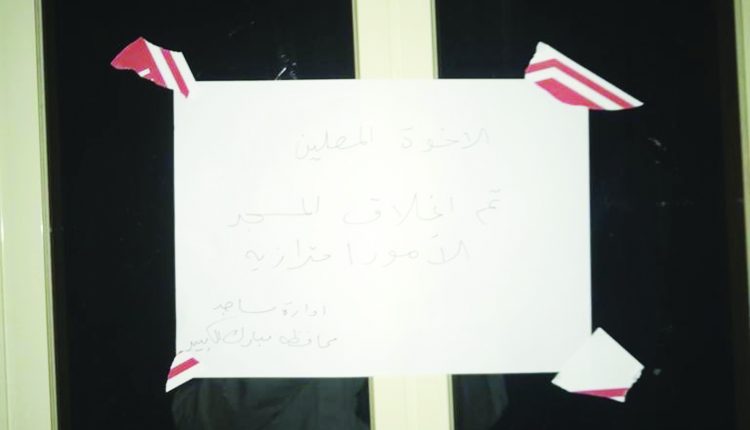 الاخوة المصلين
تم اغلاق المسجد
الأمور احترازيه
ادارة مساجد
محافظة مبارك الكبير